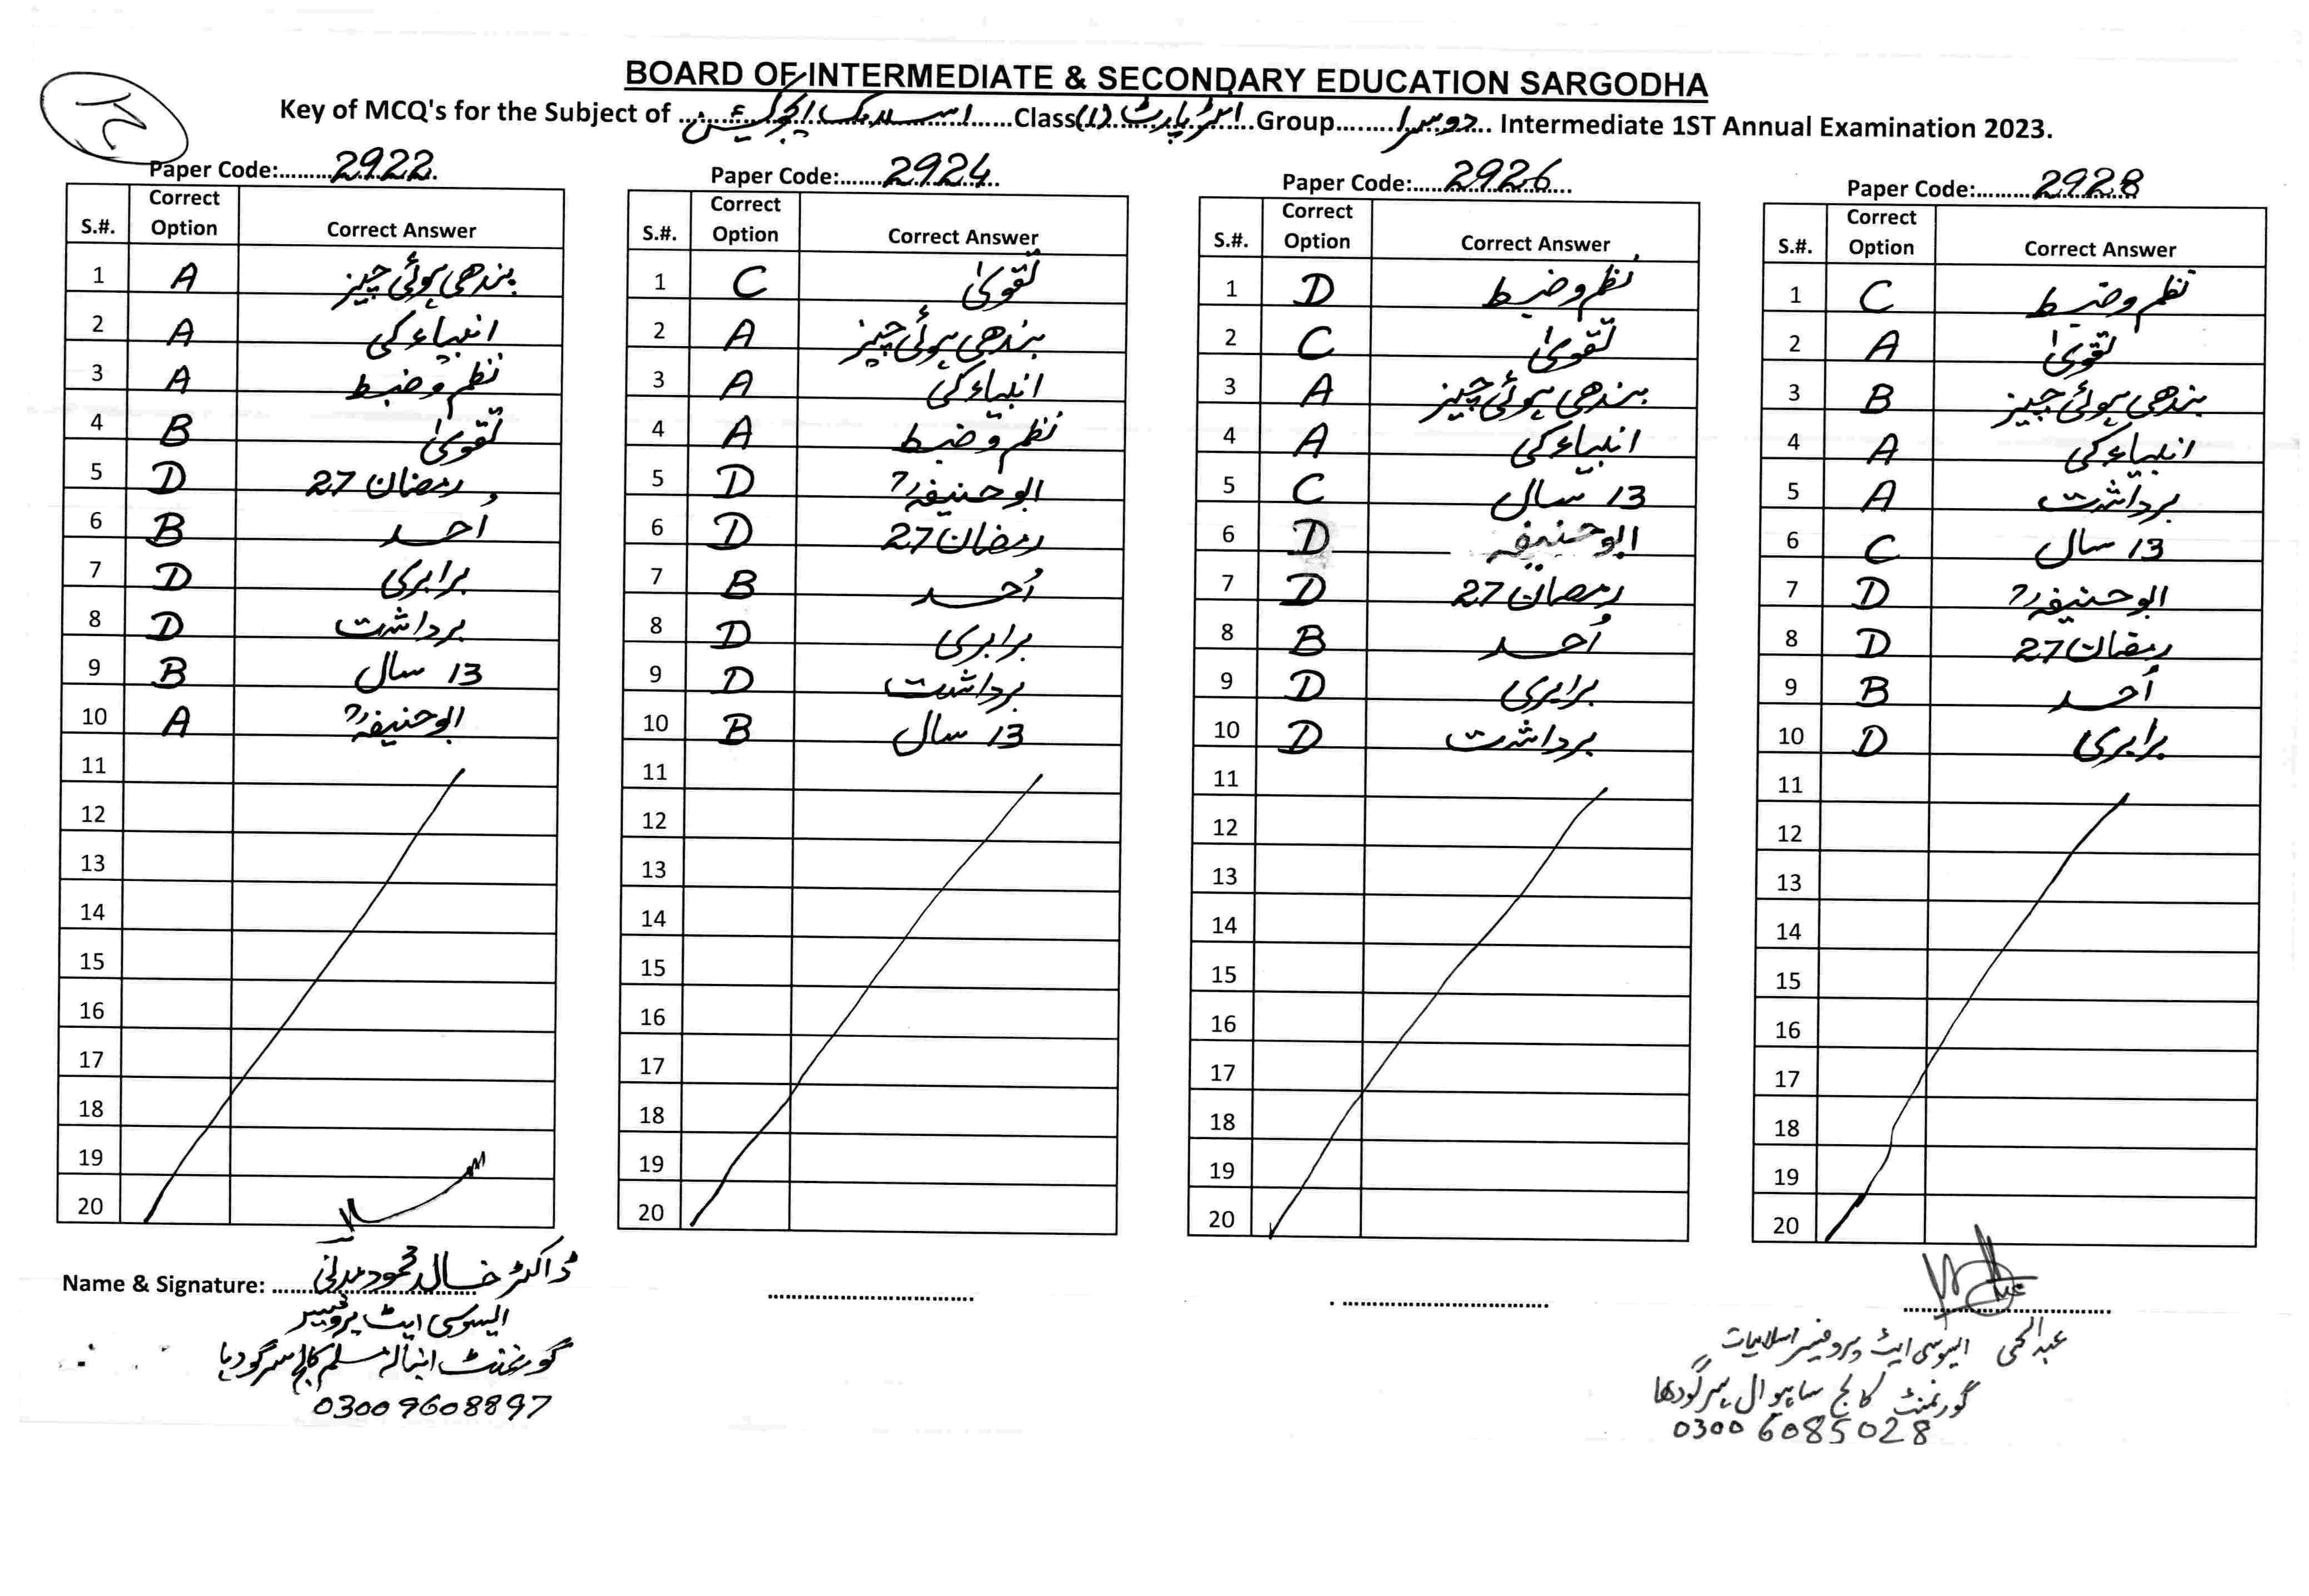 BOARD OF INTERMEDIATE & SECONDARY EDUCATION SARGODHA
Key of MCQ's for the Subject of اسلامک ایجوکیشن Class انٹر پارٹ (I) Group دوسرا Intermediate 1ST Annual Examination 2023.
Paper Code: 2922
S.#. Correct Option Correct Answer
1 A بندھی ہوئی چیز
2 A انبیاء کی
3 A نظم و ضبط
4 B تقویٰ
5 D 27 رمضان
6 B اُحد
7 D برابری
8 D برداشت
9 B 13 سال
10 A ابوحنیفہؒ
11
12
13
14
15
16
17
18
19
20
Paper Code: 2924
S.#. Correct Option Correct Answer
1 C تقویٰ
2 A بندھی ہوئی چیز
3 A انبیاء کی
4 A نظم و ضبط
5 D ابوحنیفہؒ
6 D 27 رمضان
7 B اُحد
8 D برابری
9 D برداشت
10 B 13 سال
11
12
13
14
15
16
17
18
19
20
Paper Code: 2926
S.#. Correct Option Correct Answer
1 D نظم و ضبط
2 C تقویٰ
3 A بندھی ہوئی چیز
4 A انبیاء کی
5 C 13 سال
6 D ابوحنیفہ
7 D 27 رمضان
8 B اُحد
9 D برابری
10 D برداشت
11
12
13
14
15
16
17
18
19
20
Paper Code: 2928
S.#. Correct Option Correct Answer
1 C نظم و ضبط
2 A تقویٰ
3 B بندھی ہوئی چیز
4 A انبیاء کی
5 A برداشت
6 C 13 سال
7 D ابوحنیفہؒ
8 D 27 رمضان
9 B اُحد
10 D برابری
11
12
13
14
15
16
17
18
19
20
Name & Signature: ڈاکٹر خالد محمود مدنی
ایسوسی ایٹ پروفیسر
گورنمنٹ انبالہ مسلم کالج سرگودہا
03009608897
عبدالحی ایسوسی ایٹ پروفیسر اسلامیات
گورنمنٹ کالج ساہیوال سرگودھا
0300 6085028